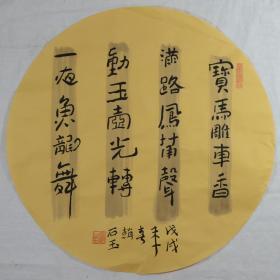 寶馬雕車香
滿路鳳簫聲
動玉壺光轉
一夜魚龍舞
戊戌
年春
趙
石玉